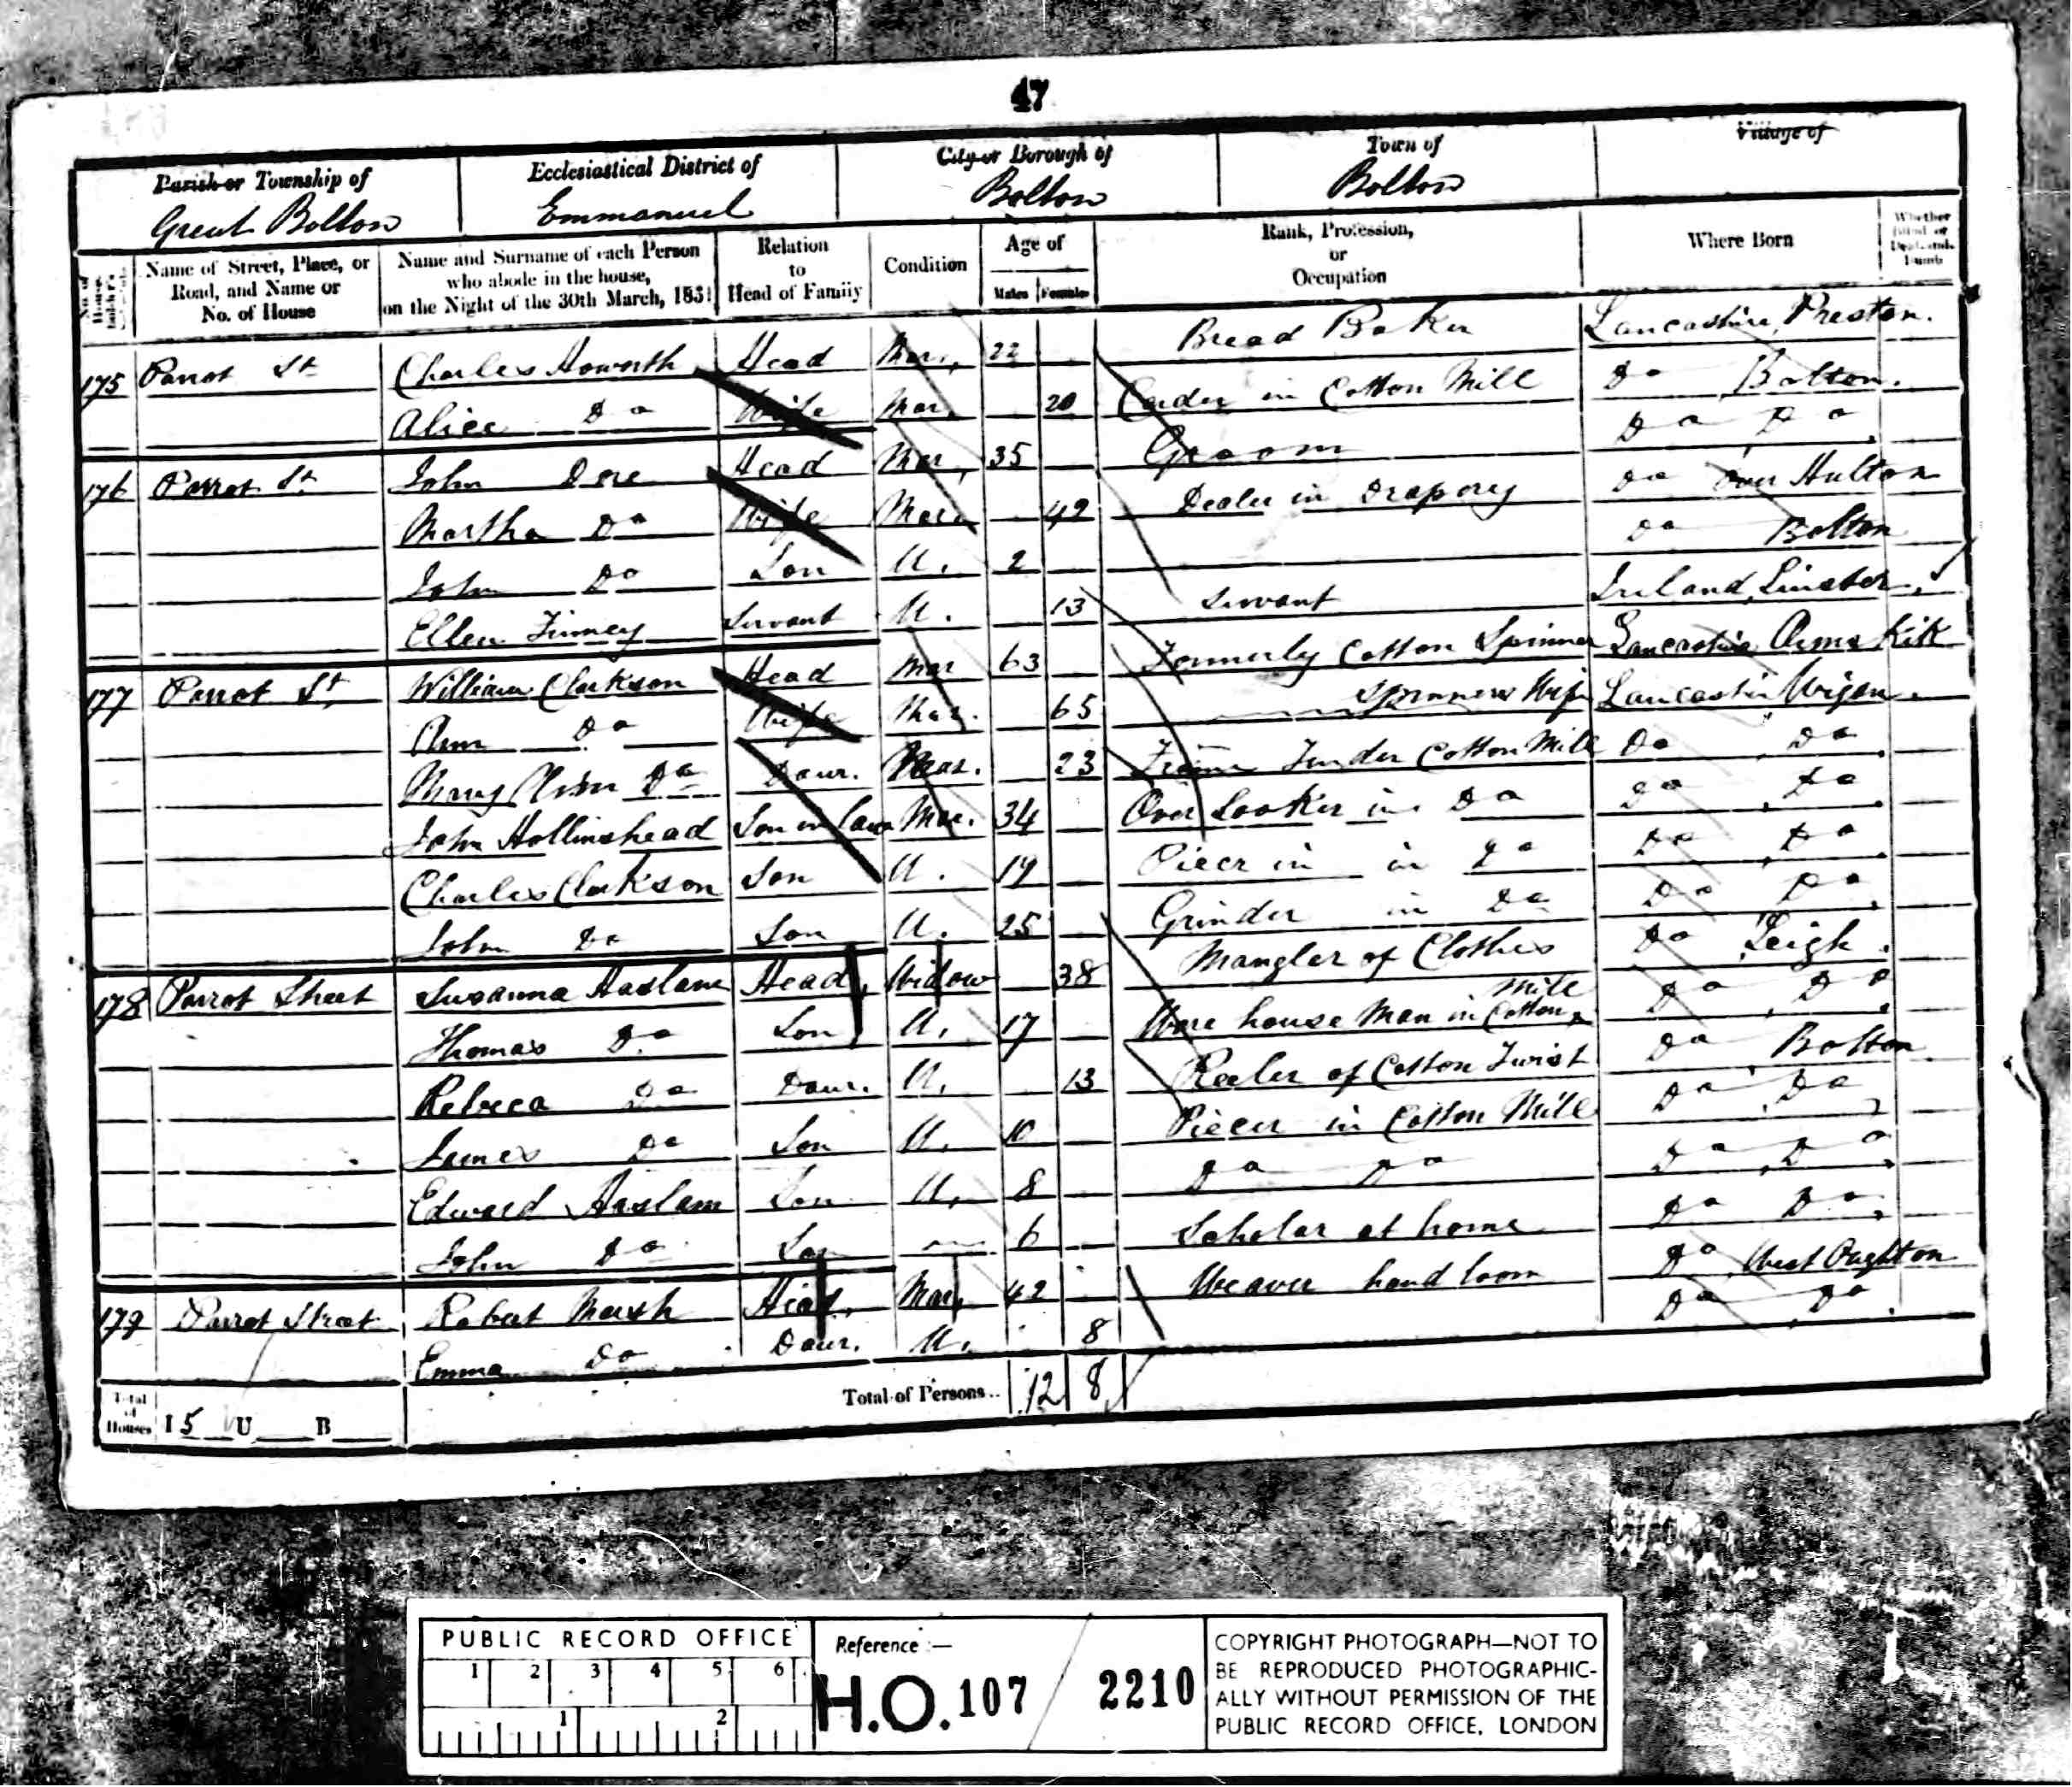 47
Parish or Township of Ecclesiastical District of City or Borough of Town of Village of
Great Bolton Emmanuel Bolton Bolton
Name of Street, Place, or Road, and Name or No. of House Name and Surname of each Person who abode in the house, on the Night of the 30th March, 1851 Relation to Head of Family Condition Age of Males Females Rank, Profession, or Occupation Where Born Whether Blind, or Deaf-and-Dumb
175 Parrot St Charles Howorth Head Mar. 22 Bread Baker Lancashire Preston.
Alice Do Wife Mar. 20 Carder in Cotton Mill Do Bolton.
176 Parrot St. John Dore Head Mar. 35 Groom Do Do
Martha Do Wife Mar. 42 Dealer in Drapery Do Over Hulton
John Do Son U. 2 Do Bolton
Ellen Finney Servant U. 13 Servant Ireland, Linster.
177 Parrot St. William Clarkson Head Mar 63 Formerly Cotton Spinner Lancashire Orms Kirk
Ann Do Wife Mar. 65 Spinners Wife Lancashire Wigan.
Mary Ann Do Daur. Mar. 23 Frame Tender Cotton Mill Do Do
John Hollinshead Son in law Mar. 34 Over Looker in Do Do Do
Charles Clarkson Son U. 19 Piecer in in Do Do Do
John Do Son U. 25 Grinder in Do Do Do
178 Parrot Street Susanna Haslam Head, Widow 38 Mangler of Clothes Do Leigh.
Thomas Do Son U. 17 Ware house Man in Cotton Mill Do Do
Rebeca Do Daur. U. 13 Reeler of Cotton Twist Do Bolton
James Do Son U. 10 Piecer in Cotton Mill Do Do
Edward Haslam Son U. 8 Do Do Do Do
John Do Son 6 Scholar at home Do Do
179 Parrot Street Robert Marsh Head. Mar. 42 Weaver hand loom Do West Oughton
Emma Do Daur. U. 8 Do Do
Total of Houses I 5 U B Total of Persons.. 12 8
PUBLIC RECORD OFFICE
1 2 3 4 5 6
1 2
Reference :—
H.O. 107 / 2210
COPYRIGHT PHOTOGRAPH—NOT TO
BE REPRODUCED PHOTOGRAPHIC-
ALLY WITHOUT PERMISSION OF THE
PUBLIC RECORD OFFICE, LONDON